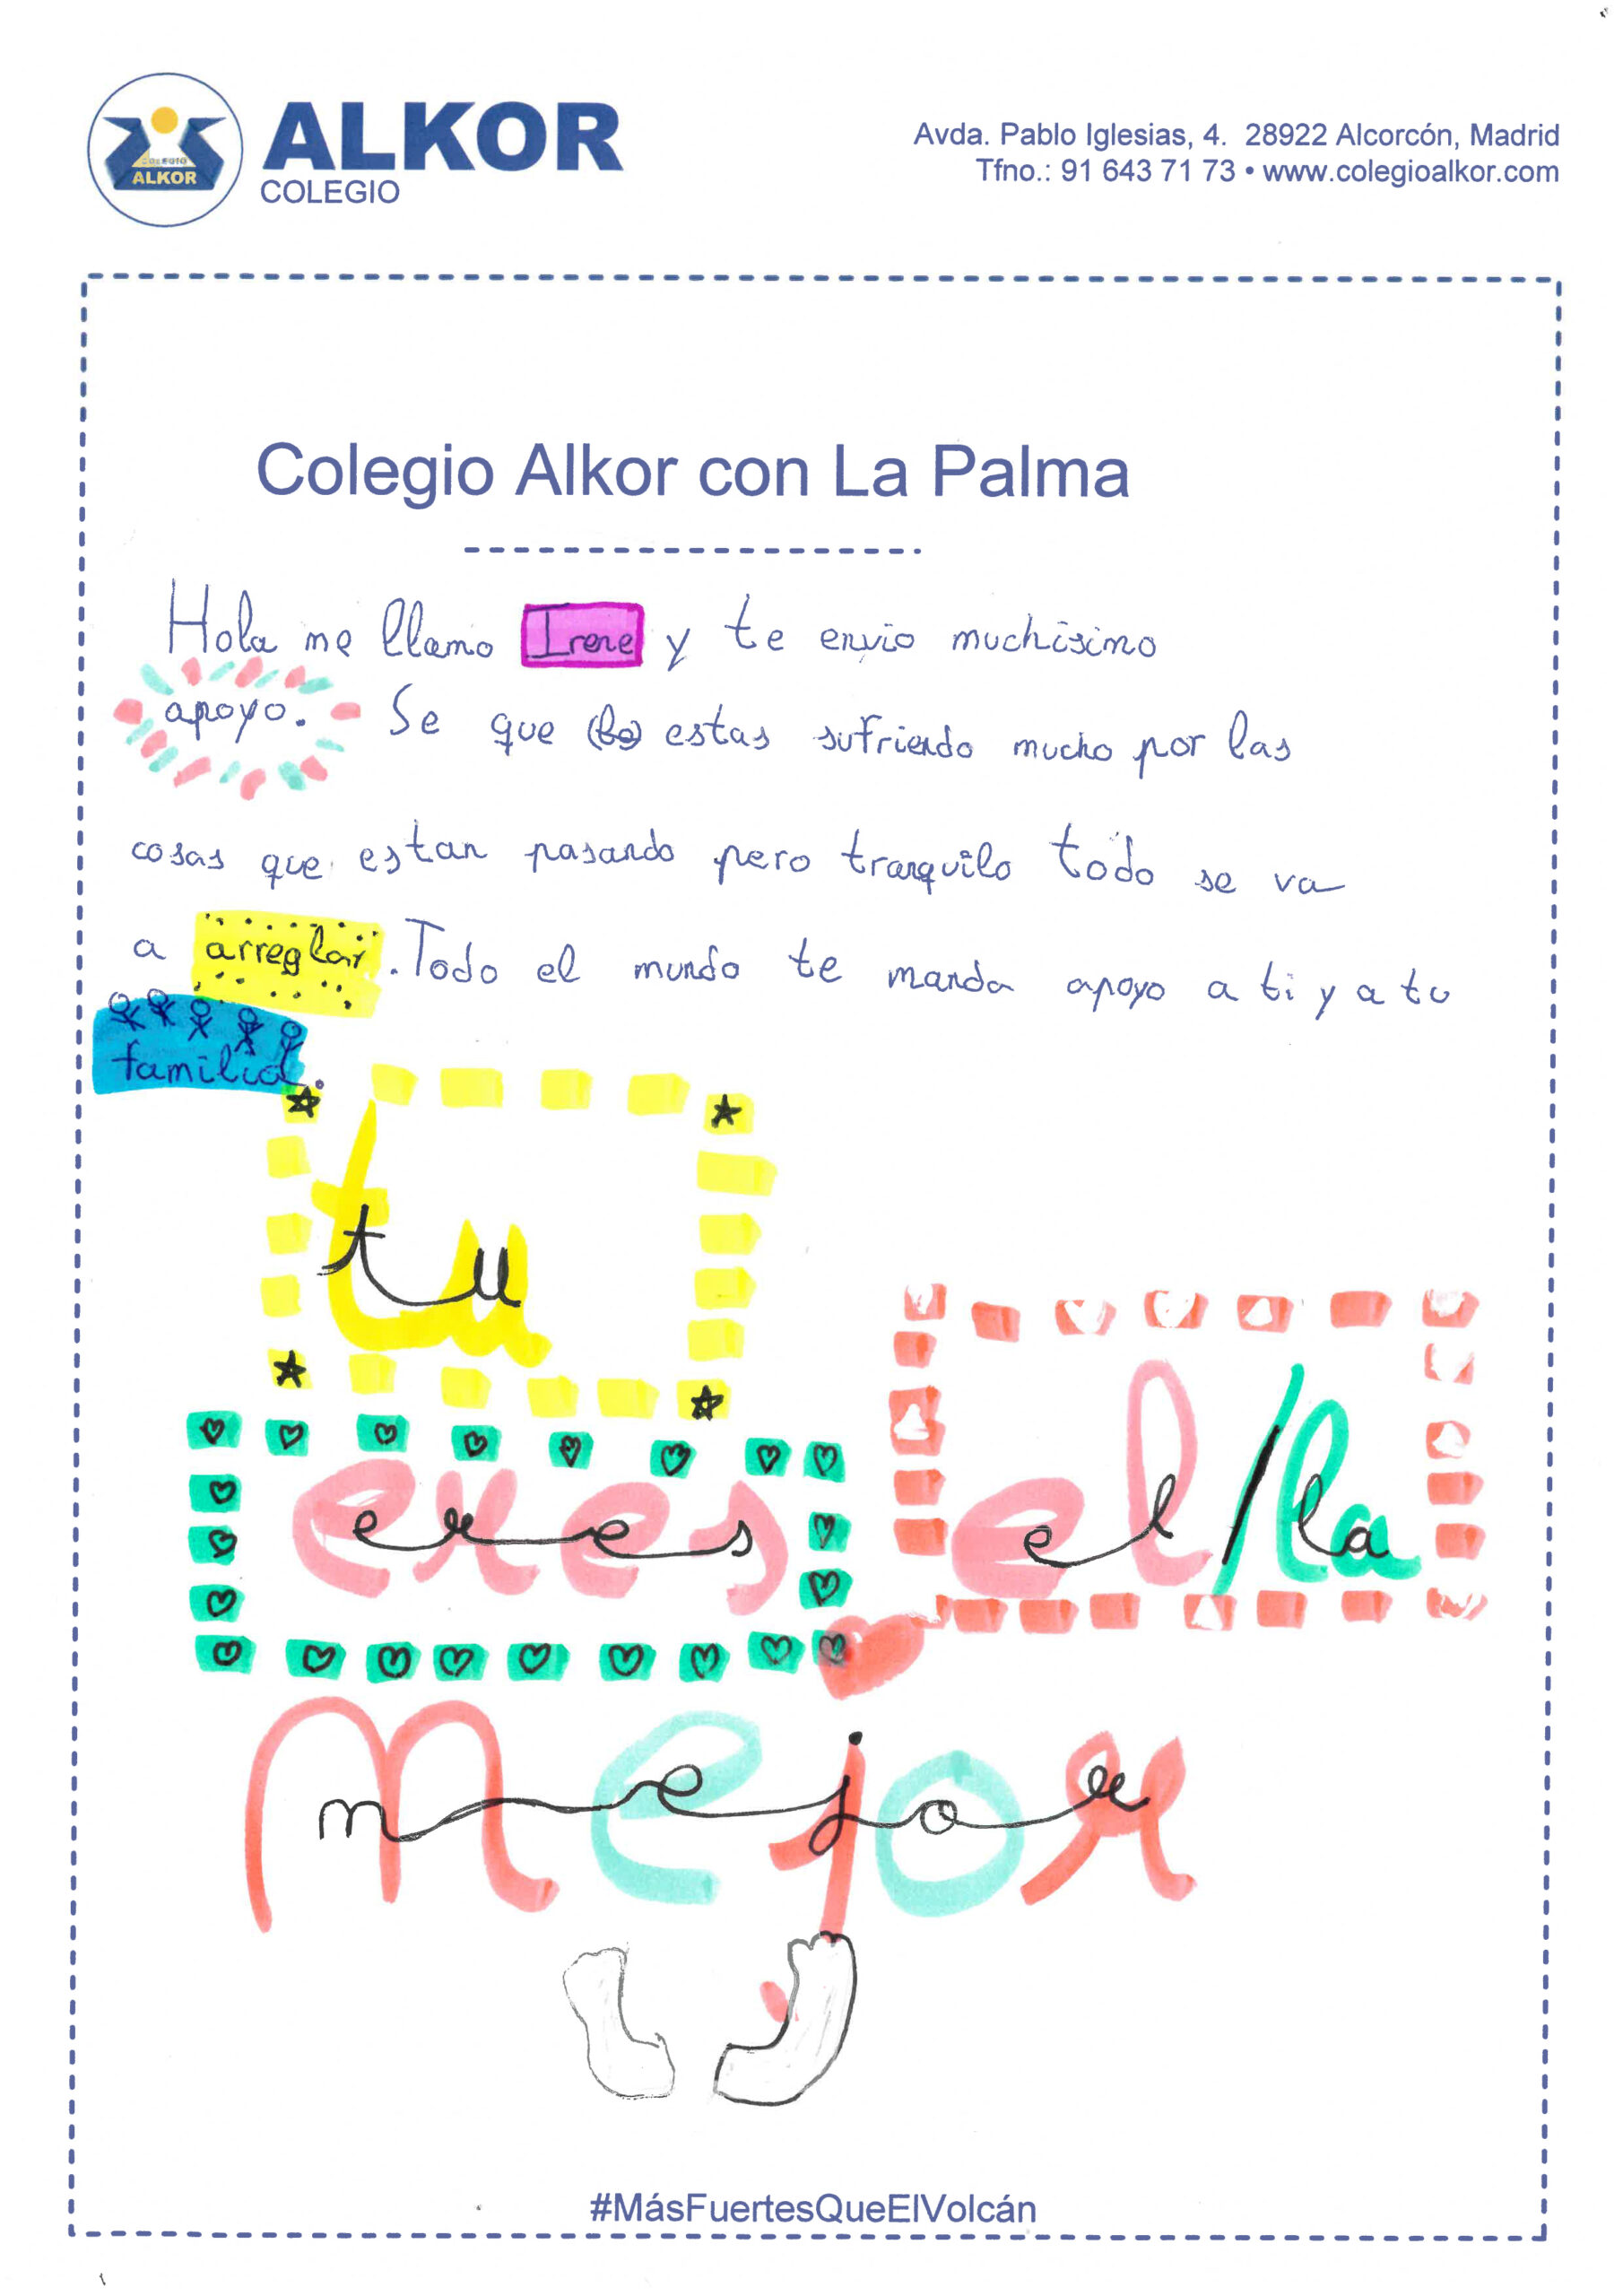 COLEGIO
ALKOR
ALKOR
COLEGIO
Avda. Pablo Iglesias, 4. 28922 Alcorcón, Madrid
Tfno.: 91 643 71 73 • www.colegioalkor.com
Colegio Alkor con La Palma
Hola me llamo Irene y te envio muchisimo
apoyo. Se que estas sufriendo mucho por las
cosas que estan pasando pero tranquilo todo se va
a arreglar. Todo el mundo te manda apoyo a ti y a tu
familia.
tu
eres el/la
mejor
#MásFuertesQueElVolcán